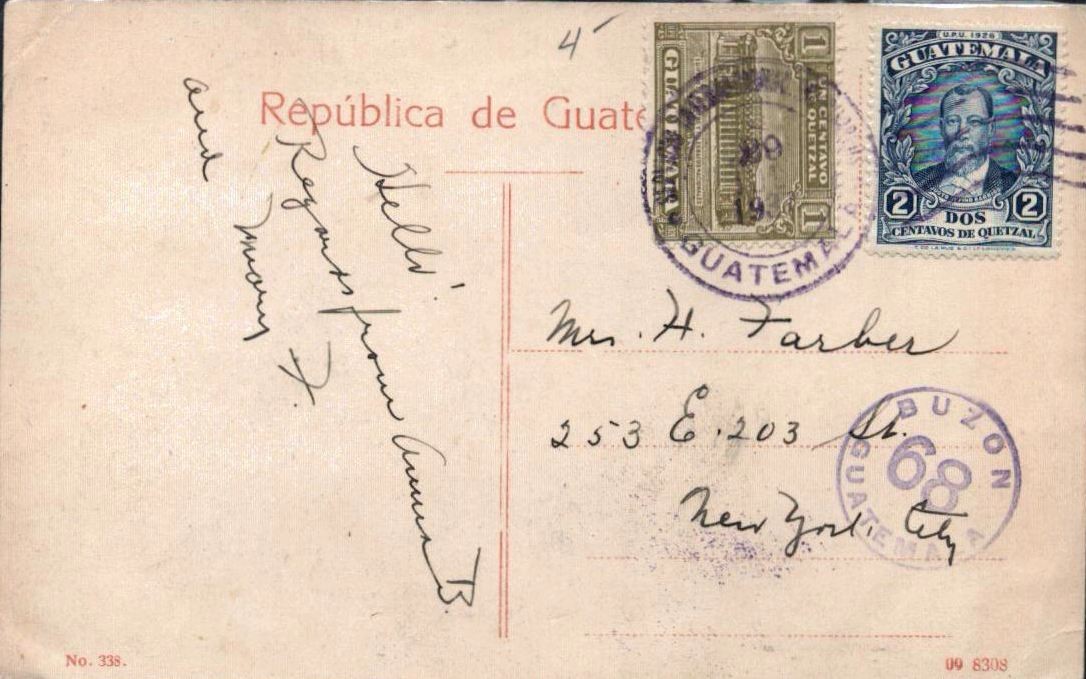 4
República de Guate
Hello!
Regards from Anna B.
and
Mary F.
UN CENTAVO
DE QUETZAL
1
1
GUATEMALA
GUATEMALA
U.P.U. 1926
GUATEMALA
2
2
DOS
CENTAVOS DE QUETZAL
Mrs. H. Farber
253 E. 203 St.
New York City
BUZON
68
GUATEMALA
No. 338.
09 8308